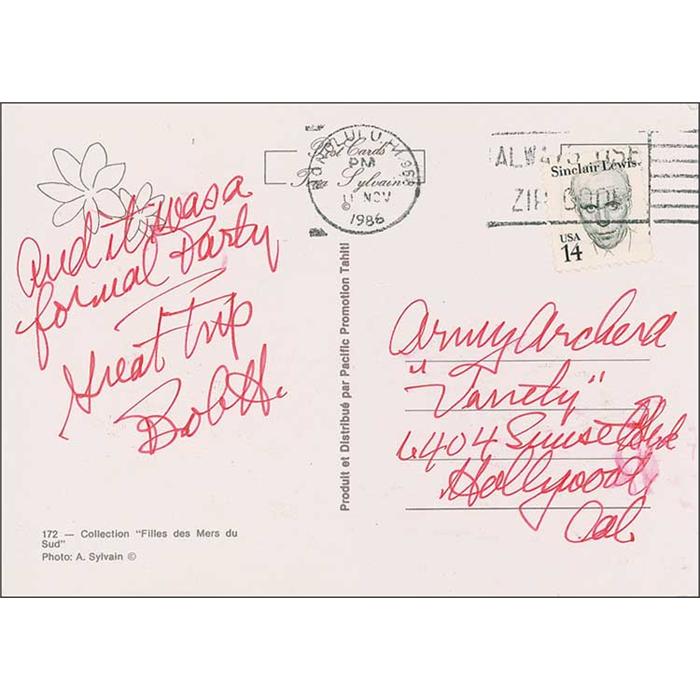 And it was a
formal Party
Great Trip
Bob H.
172 — Collection "Filles des Mers du
Sud"
Photo: A. Sylvain ©
Produit et Distribué par Pacific Promotion Tahiti
Post Cards
Sylvain
©
HONOLULU, HI 968
PM
11 NOV
1986
ALWAYS USE
ZIP CODE
Sinclair Lewis
USA
14
Army Archerd
"Variety"
6404 Sunset Blvd
Hollywood,
Cal.